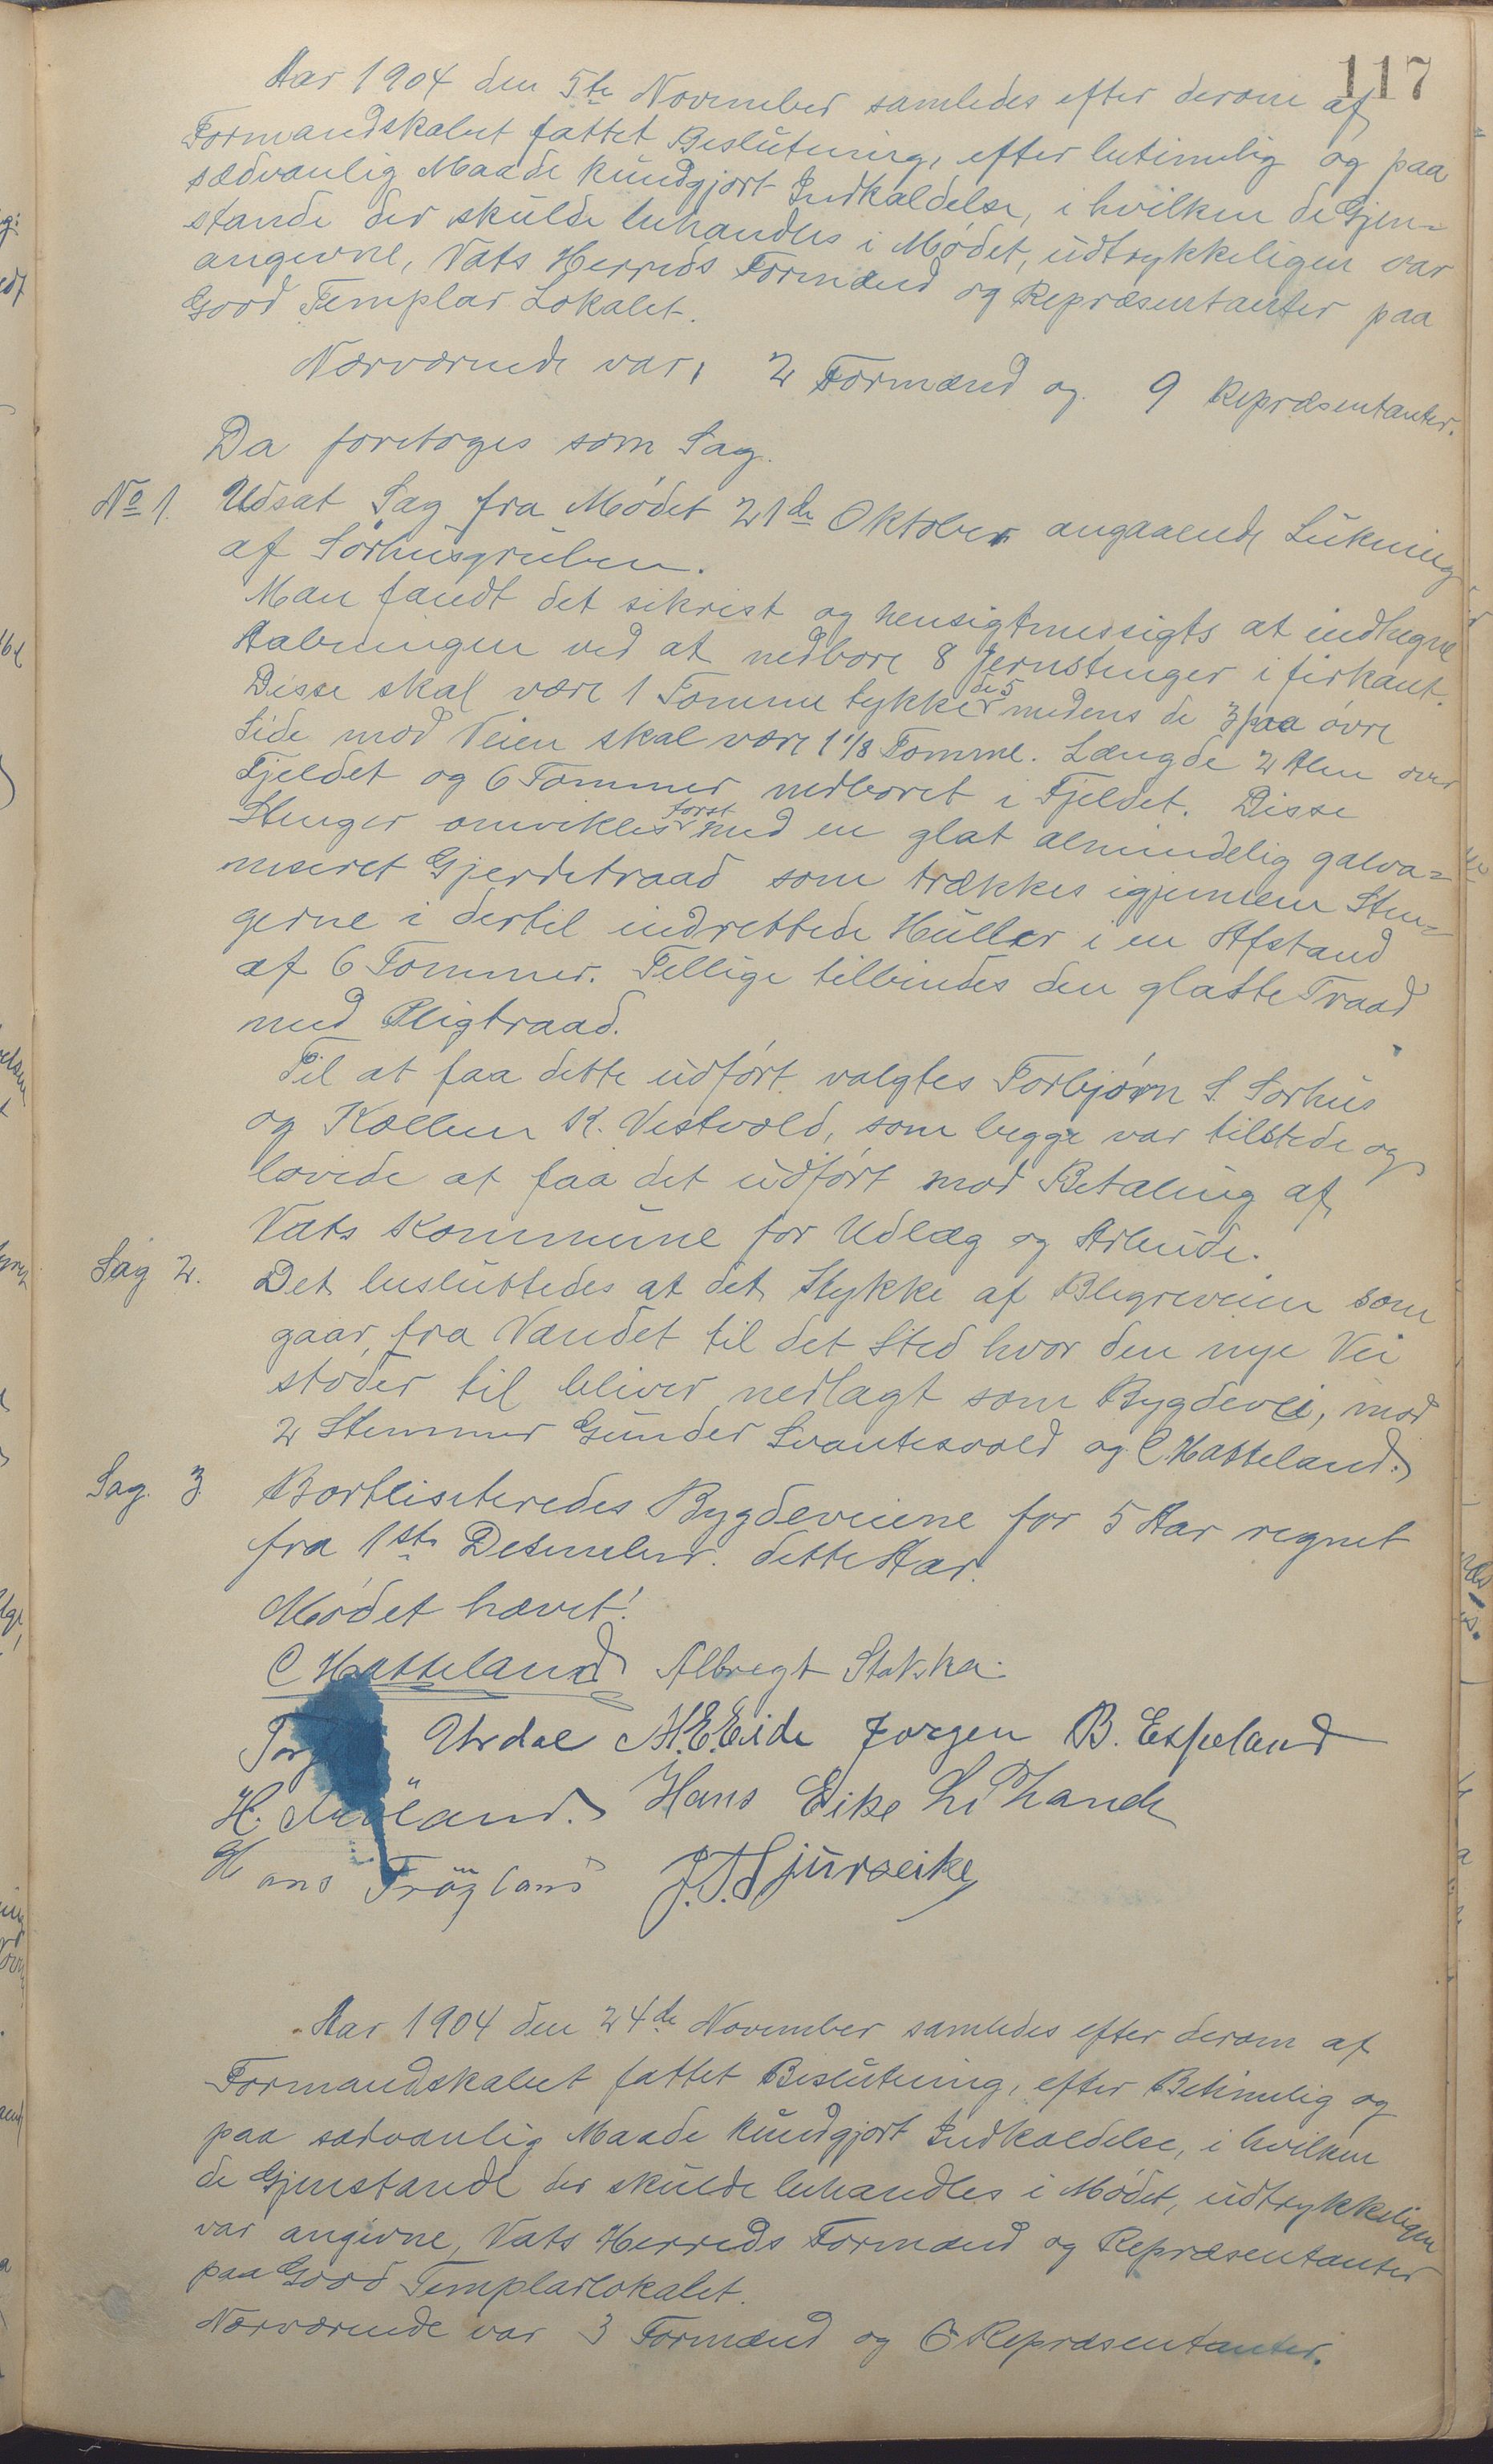 117
Aar 1904 den 5te November samledes efter derom af
Formandskabet fattet Beslutning, efter betimelig og paa
sædvanlig Maade kundgjort Indkaldelse, i hvilken de Gjen-
stande der skulde behandles i Mødet, udtrykkeligen var
angivne, Vats Herreds Formænd og Repræsentanter paa
Good Templar Lokalet.
Nærværende var, 2 Formænd og 9 Repræsentanter.
Da foretoges som Sag.
No 1. Udsat Sag fra Mødet 21de Oktober angaaende Lukning
af Sørhusgruben.
Man fandt det sikrest og hensigtmessigts at indhegne
Aabningen ved at nedbore 8 Jernstenger i firkant.
Disse skal være 1 Tomme tykke de 5 medens de 3 paa øvre
Side mod Veien skal være 1 1/8 Tomme. Længde 2 Alen over
Fjeldet og 6 Tommer nedboret i Fjeldet. Disse
Stenger omvikles først med en glat almindelig galva-
niseret Gjerdetraad som trækkes igjennem Sten-
gerne i dertil indrettede Huller i en Afstand
af 6 Tommer. Tillige tilbindes den glatte Traad
med Pligtraad.
Til at faa dette udført valgtes Torbjørn S. Sørhus
og Kollein K. Vestvold, som begge var tilstede og
lovede at faa det udført mod Betaling af
Vats Kommune for Udlæg og Arbeide.
Sag 2. Det besluttedes at det Stykke af Blegreveien som
gaar fra Vandet til det Sted hvor den nye Vei
støder til bliver nedlagt som Bygdevei, mod
2 Stemmer Gunder Svantesvold og C. Hatteland.
Sag. 3 Bortlisiteredes Bygdeveiene for 5 Aar regnet
fra 1ste Desember dette Aar.
Mødet hævet!
C Hatteland Albregt Stakka.
Urdal A.E.Eide Jorgen B. Espeland
H. Hans Eike
Hans Frøgland J.T.Sjurseike
Aar 1904 den 24de November samledes efter derom af
Formandskabet fattet Beslutning, efter Betimelig og
paa sædvanlig Maade kundgjort Indkaldelse, i hvilken
de Gjenstande der skulde behandles i Mødet, udtrykkeligen
var angivne, Vats Herreds Formænd og Repræsentanter
paa Good Templarlokalet.
Nærværende var 3 Formænd og 6 Repræsentanter.